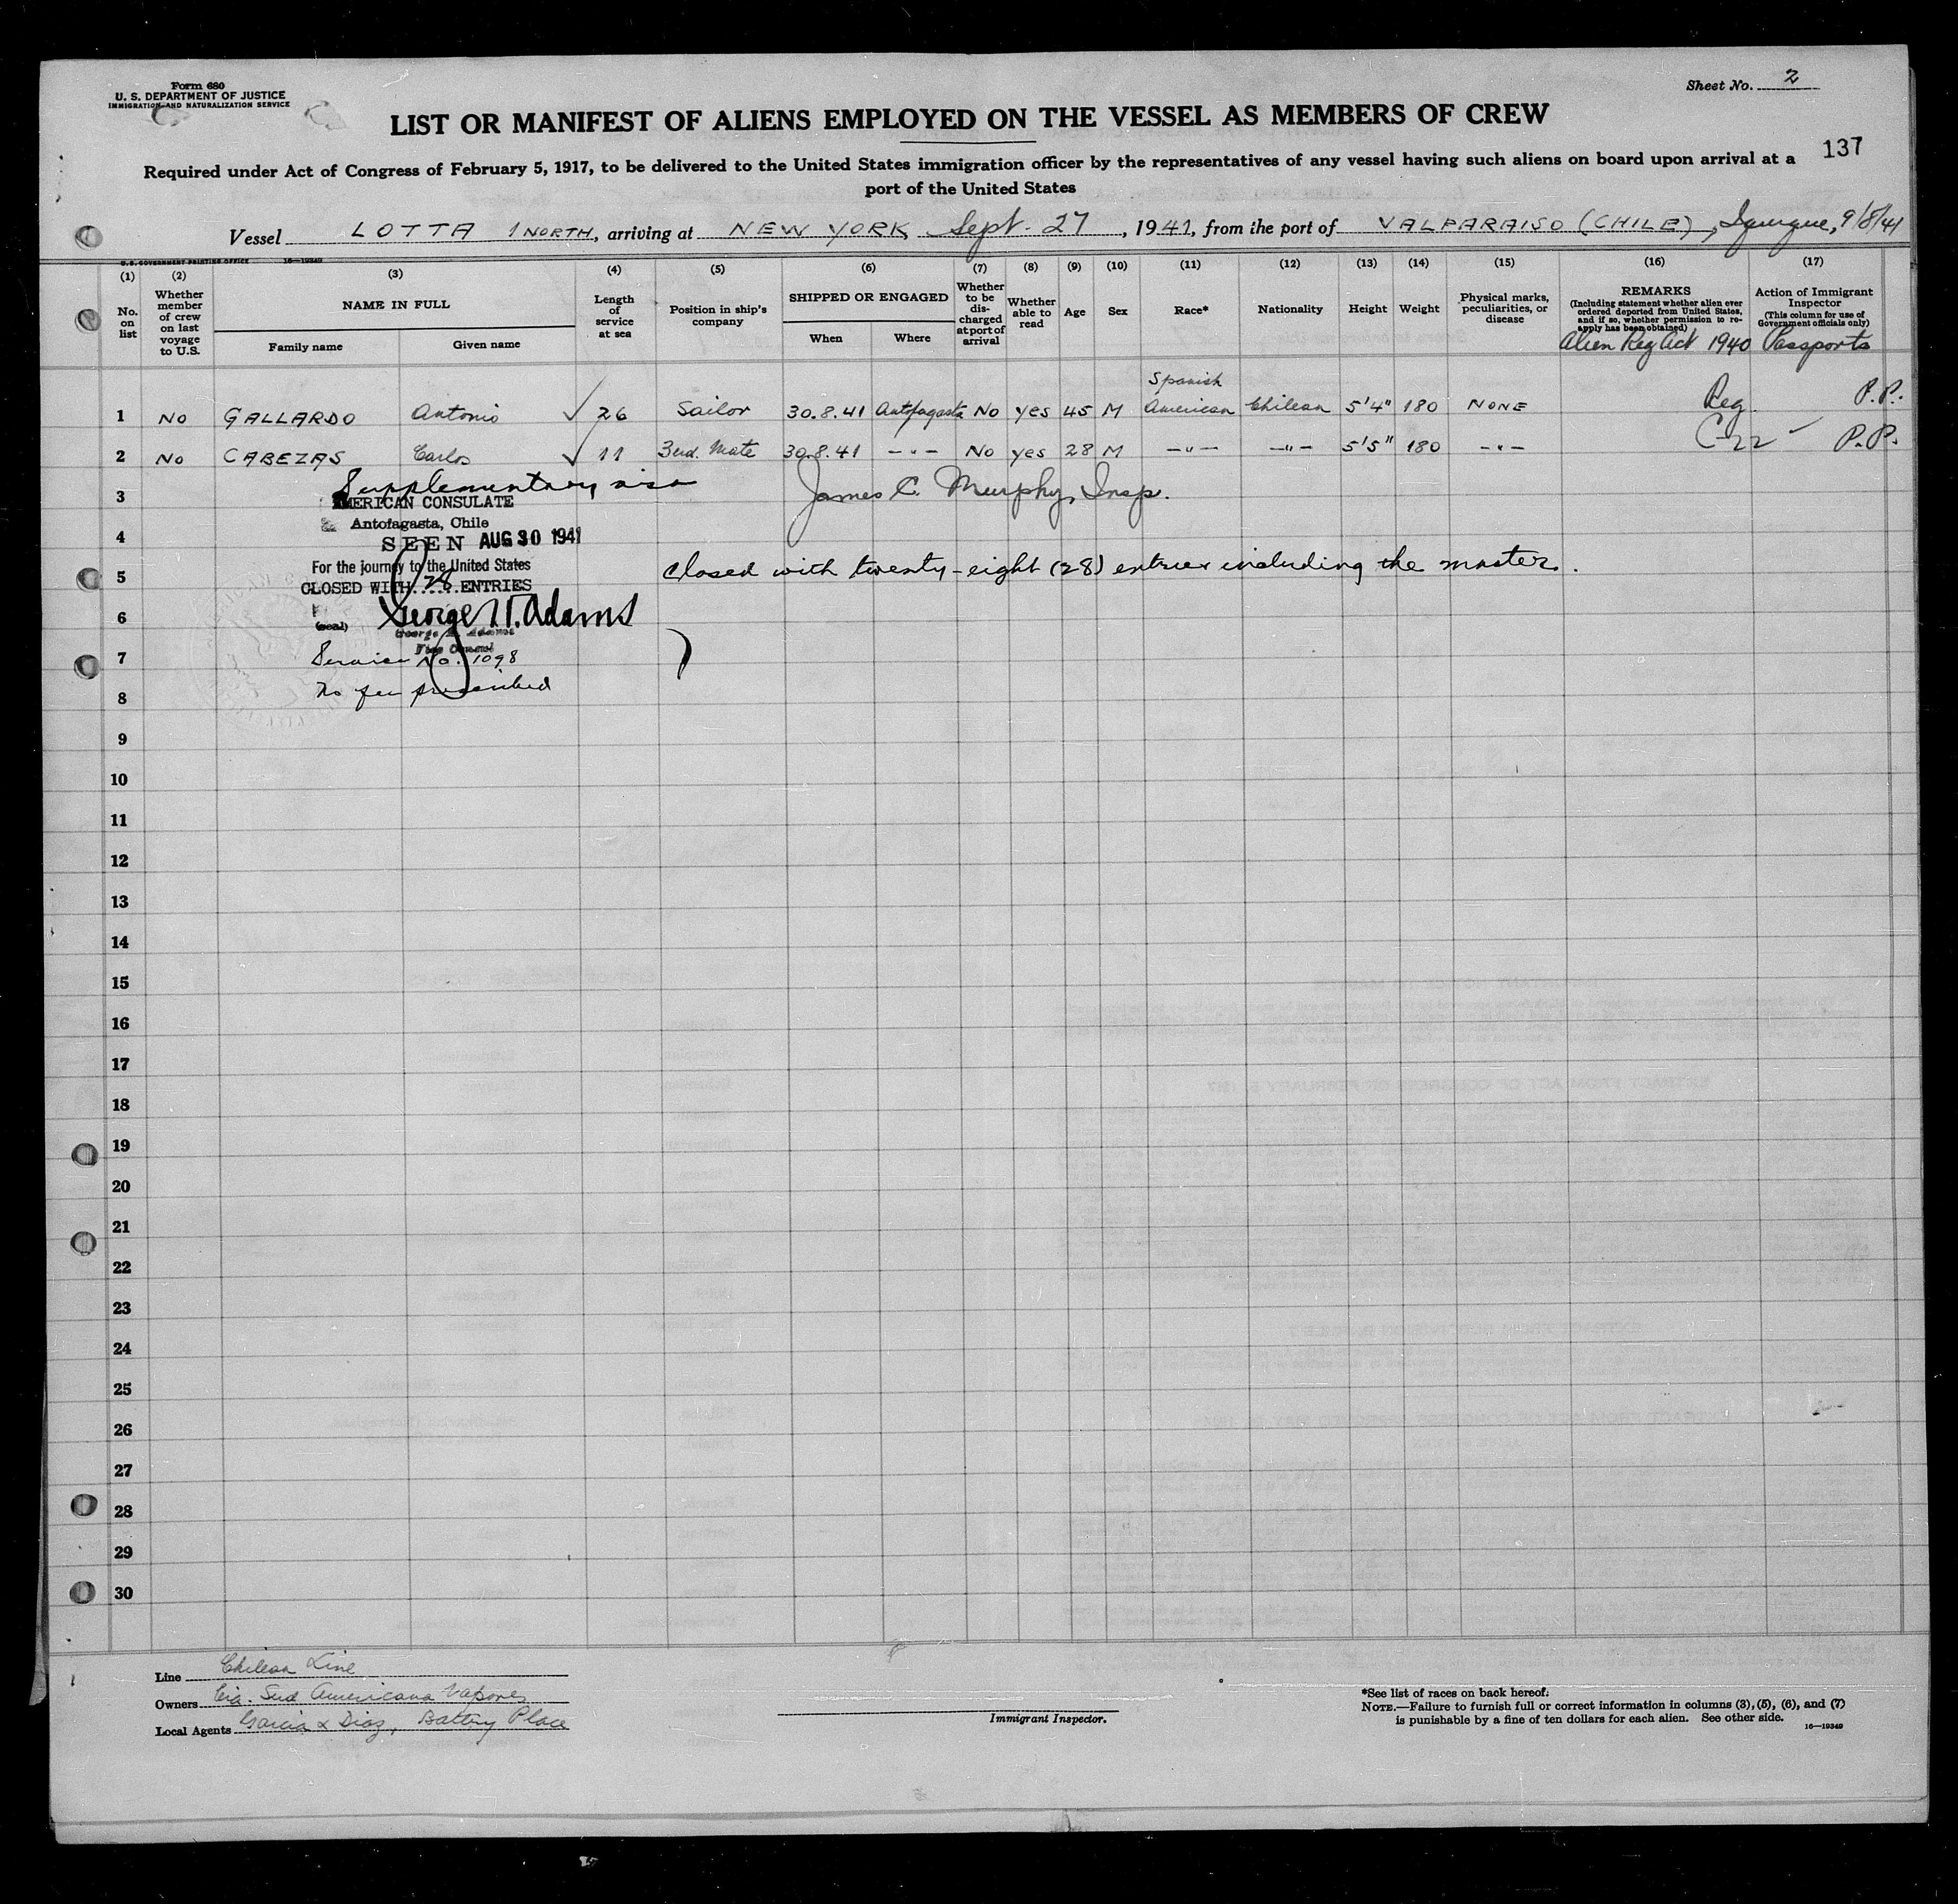 Form 680
U. S. DEPARTMENT OF JUSTICE
IMMIGRATION AND NATURALIZATION SERVICE
Sheet No. 2
LIST OR MANIFEST OF ALIENS EMPLOYED ON THE VESSEL AS MEMBERS OF CREW
137
Required under Act of Congress of February 5, 1917, to be delivered to the United States immigration officer by the representatives of any vessel having such aliens on board upon arrival at a
port of the United States
Vessel LOTTA 1 NORTH, arriving at NEW YORK Sept. 27, 1941, from the port of VALPARAISO (CHILE), Iquique, 9/8/41
U. S. GOVERNMENT PRINTING OFFICE 16—19349
(1) (2) (3) (4) (5) (6) (7) (8) (9) (10) (11) (12) (13) (14) (15) (16) (17)
No. on list
Whether member of crew on last voyage to U.S.
NAME IN FULL
Family name
Given name
Length of service at sea
Position in ship's company
SHIPPED OR ENGAGED
When
Where
Whether to be discharged at port of arrival
Whether able to read
Age
Sex
Race*
Nationality
Height
Weight
Physical marks, peculiarities, or disease
REMARKS
(Including statement whether alien ever ordered deported from United States, and if so, whether permission to re-apply has been obtained)
Alien Reg Act 1940
Action of Immigrant Inspector
(This column for use of Government officials only)
Passports
1 NO GALLARDO Antonio ✓ 26 Sailor 30.8.41 Antofagasta No yes 45 M Spanish American Chilean 5'4" 180 NONE Reg P.P.
2 NO CABEZAS Carlos ✓ 11 3erd. Mate 30.8.41 —"— No yes 28 M —"— —"— 5'5" 180 —"— C-22 — P.P.
3 Supplementary visa James C. Murphy, Insp.
AMERICAN CONSULATE
Antofagasta, Chile
4
SEEN AUG 30 1941
For the journey to the United States
5 closed with twenty-eight (28) entries including the master.
CLOSED WITH 28 ENTRIES
6 George W. Adams
(seal)
Vice Consul
7 Service No. 1098
8 No fee prescribed
9
10
11
12
13
14
15
16
17
18
19
20
21
22
23
24
25
26
27
28
29
30
Line Chilean Line
Owners Cia. Sud Americana Vapores
Local Agents Garcia & Diaz, Battery Place
Immigrant Inspector.
*See list of races on back hereof.
NOTE.—Failure to furnish full or correct information in columns (3), (5), (6), and (7)
is punishable by a fine of ten dollars for each alien. See other side.
16—19349